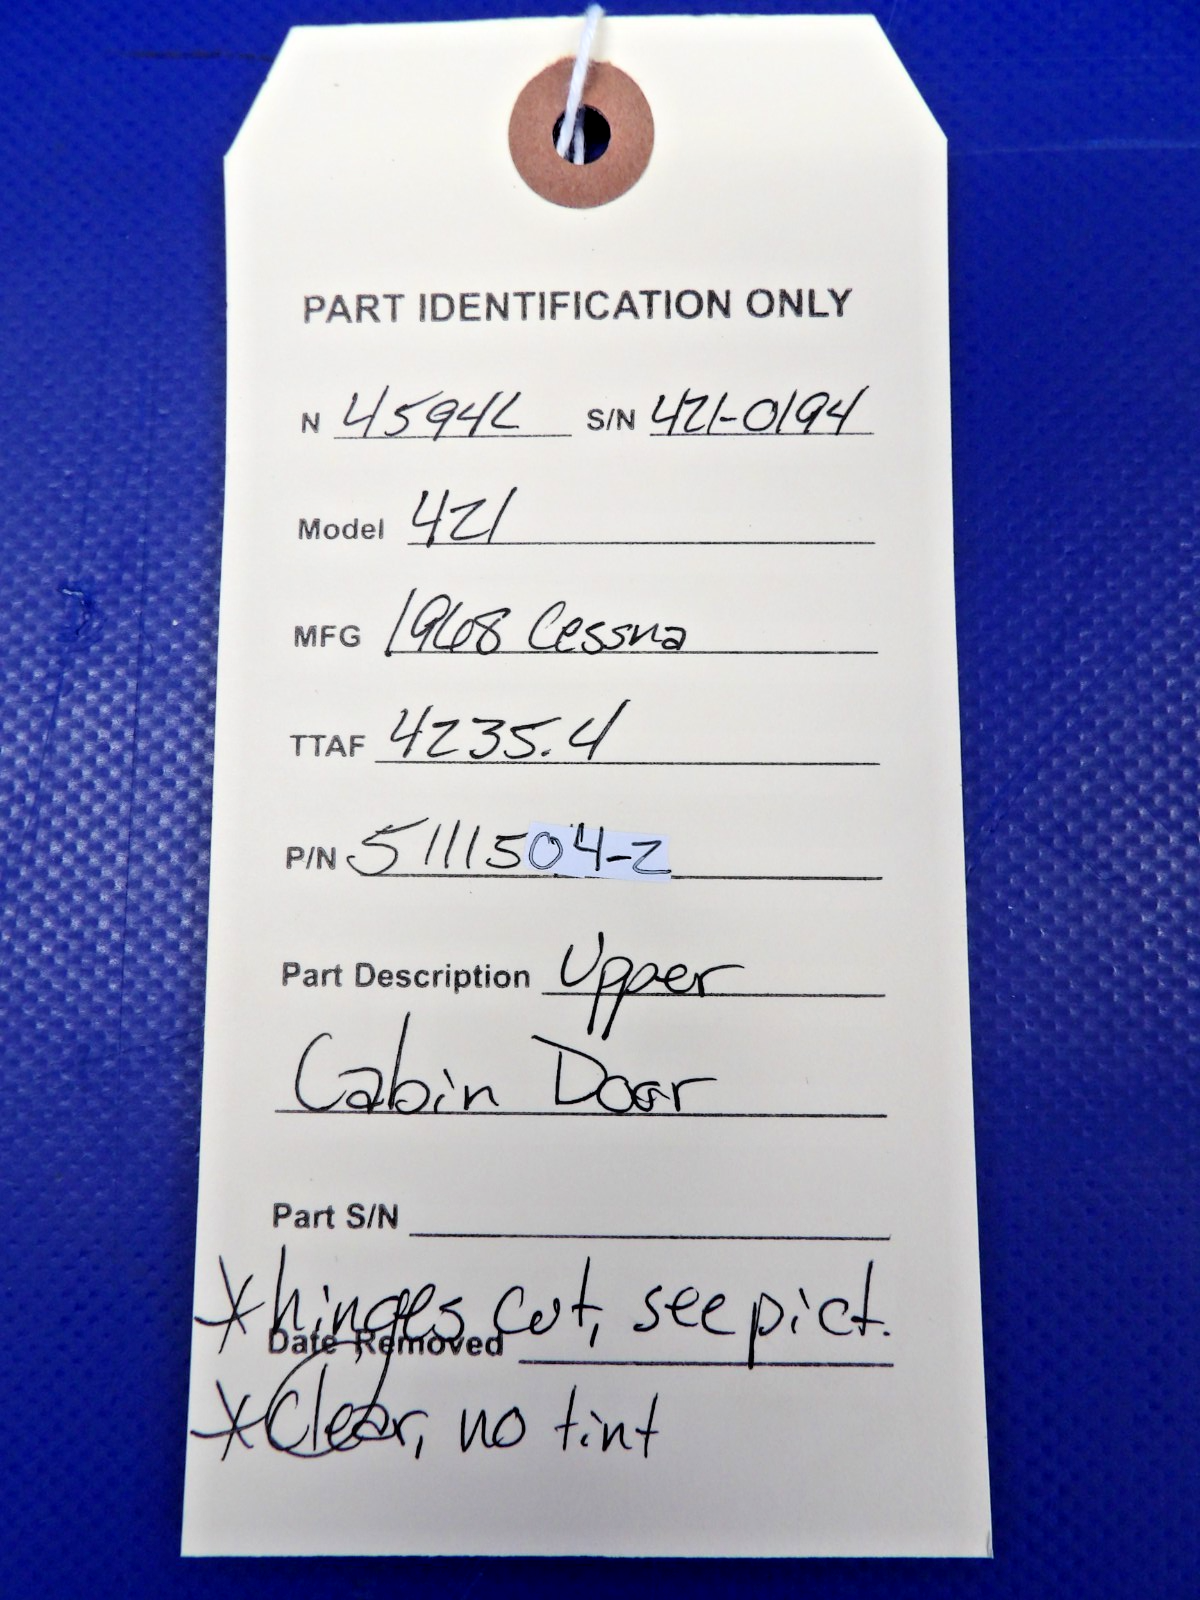 PART IDENTIFICATION ONLY
N 4594L S/N 421-0194
Model 421
MFG 1968 Cessna
TTAF 4235.4
P/N 5111504-2
Part Description Upper
Cabin Door
Part S/N
*hinges cut, see pict.
Date Removed
*Clear, no tint